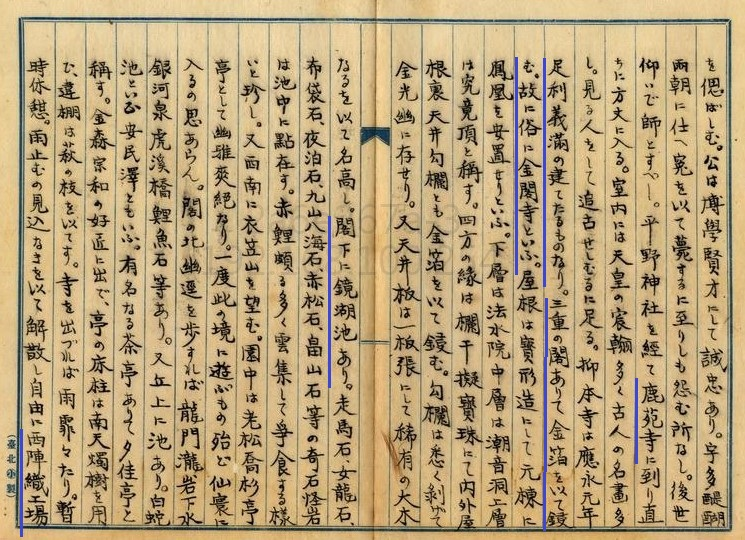 を偲ばしむ。公は博學賢才にして誠忠あり。宇多醍醐
兩朝に仕へ寃を以て薨するに至りしも怨む所なし。後世
仰いで師とすべし。平野神社を經て鹿苑寺に到り直
ちに方丈に入る。室内には天皇の宸翰多く古人の名畫多
し。見る人をして追古せしむるに足る。抑本寺は應永元年
足利義滿の建てたるものなり。三重の閣ありて金箔を以て鏤
む。故に俗に金閣寺といふ。屋根は寳形造にして元棟に
鳳凰を安置せりといふ。下層は法水院中層は潮音洞上層
は究竟頂と稱す。四方の緣は欄干擬寳珠にて内外屋
根裏天井勾欄とも金箔を以て鏤む。勾欄は悉く剝げて
金光幽に存せり。又天井板は一板張にして稀有の大木
なるを以て名高し。閣下に鏡湖池あり。走馬石、女龍石、
布袋石、夜泊石、九山八海石赤松石、畠山石等の奇石怪岩
は池中に點在す。赤鯉頗る多く雲集して爭食する樣
いと珍し。又西南に衣笠山を望む。園中は老松喬杉亭
亭として幽雅爽絕なり。一度此の境に遊ぶもの殆ど仙寰に
入るの思あらん。閣の北幽逕を歩すれば龍門瀧岩下水
銀河泉虎溪橋鯉魚石等あり。又丘上に池あり。白蛇
池といひ安民澤ともいふ。有名なる茶亭ありて夕佳亭と
稱す。金森宗和の好匠に出で、亭の床柱は南天燭樹を用
ひ、違棚は萩の枝を以てす。寺を出づれば雨霏々たり。暫
時休憩。雨止むの見込なきを以て解散し自由に西陣織工場
(臺北小製)